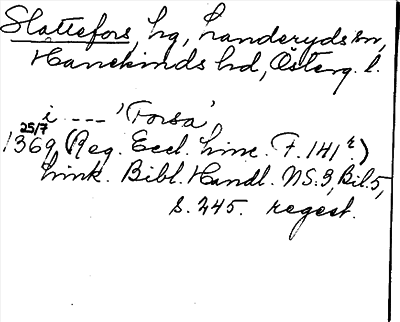 Slattefors, hg, Landeryds sn,
Hanekinds hd, Österg. l.
i --- 'Forsa'
25/7
1369 (Reg. Eccl. Linc. F. 141 r.)
Link. Bibl. Handl. NS. 3, Bil. 5,
s. 245. regest.